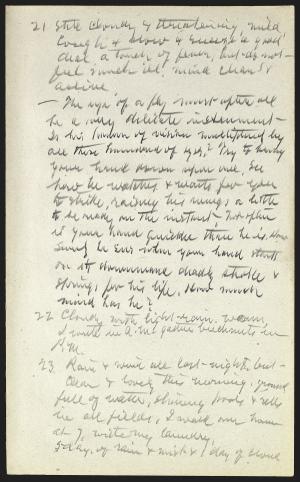 21 Still cloudy & threatening, mild
Cough & blow & sneeze a good
deal, a touch of fever, but do not
feel much ill; mind clear &
active.
— The eye of a fly must after all
be a very delicate instrument —
Is his power of vision multiplied by
all those thousand of eyes? Try to bring
your hand down upon one, see
how he watches & waits for you
to strike, raising his wings a little
to be ready on the instant; how often
is your hand quicker than he is. How
sure he is when your hand starts
on its downward deadly stroke &
springs for his life. How much
mind has he?
22 Cloudy with light rain, warm
I write in A.M. gather beechnuts in
P.M.
23 Rain & wind all last night, but
clear & lovely this morning, ground
full of water, shining pools & rills
in all fields, I walk
at 7,
5 days of rain & mist & 1 day of shine